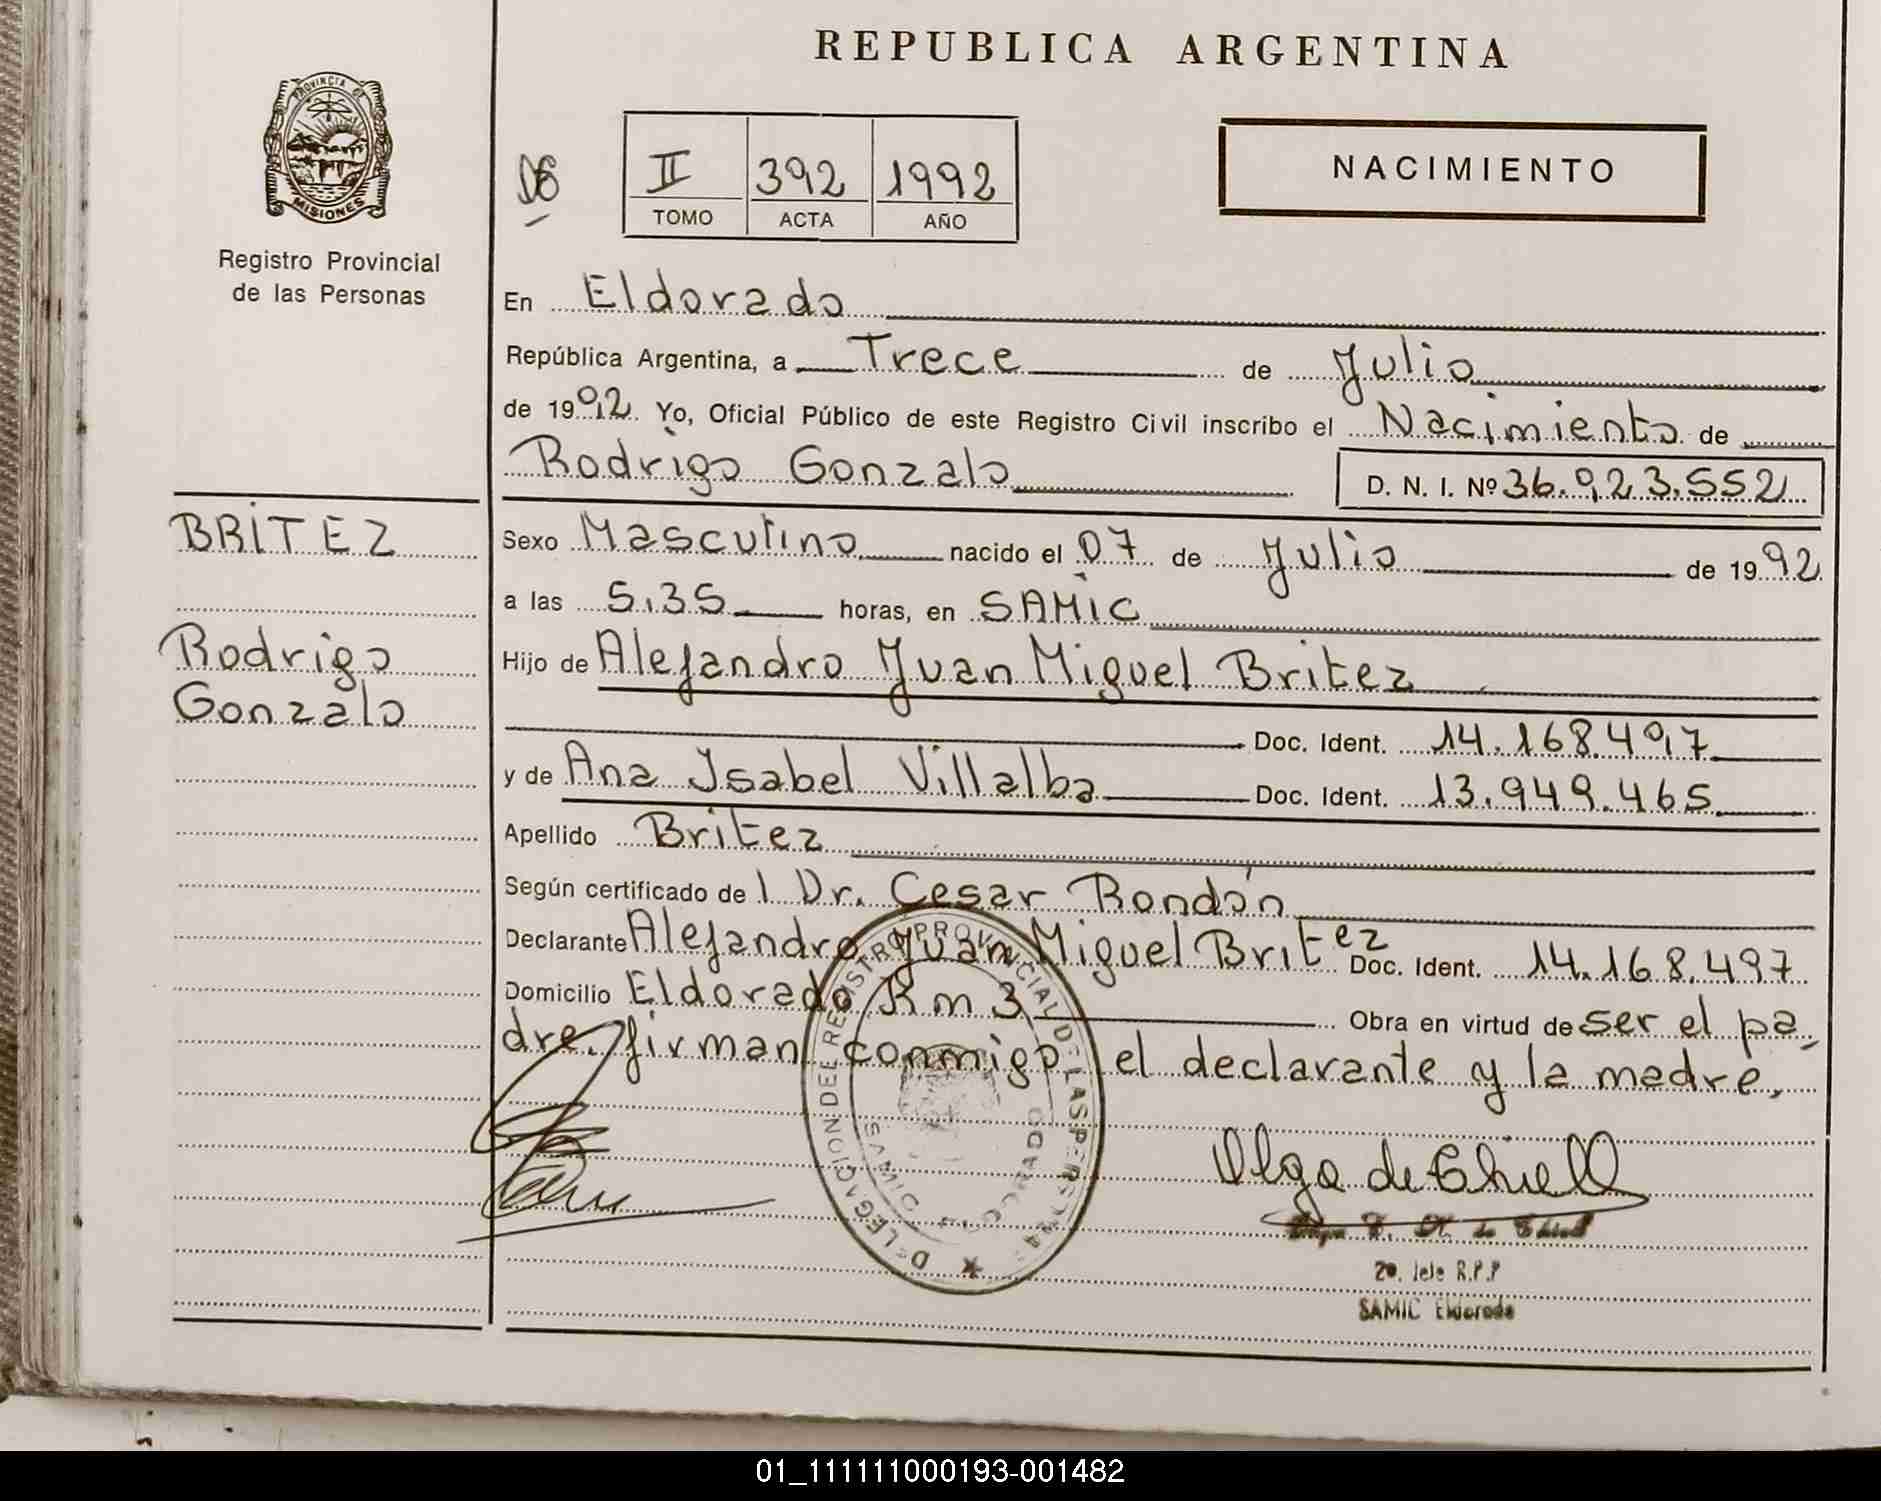 REPUBLICA ARGENTINA
PROVINCIA DE
MISIONES
Registro Provincial
de las Personas
II 392 1992
TOMO ACTA AÑO
NACIMIENTO
En Eldorado
República Argentina, a Trece de Julio
de 1992 Yo, Oficial Público de este Registro Civil inscribo el Nacimiento de
Rodrigo Gonzalo D. N. I. Nº 36.923.552
BRITEZ
Rodrigo
Gonzalo
Sexo Masculino nacido el 07 de Julio de 1992
a las 5,35 horas, en SAMIC
Hijo de Alejandro Juan Miguel Britez
Doc. Ident. 14.168.497
y de Ana Isabel Villalba Doc. Ident. 13.949.465
Apellido Britez
Según certificado del Dr. Cesar Rondón
Declarante Alejandro Juan Miguel Britez Doc. Ident. 14.168.497
Domicilio Eldorado Km 3 Obra en virtud de ser el pa
dre. firman conmigo el declarante y la madre.
DELEGACION DEL REGISTRO PROVINCIAL DE LAS PERSONAS
SAMIC ELDORADO
Olga de Chiell
de Chiell
2º. Jefe R.P.P
SAMIC Eldorado
01_111111000193-001482